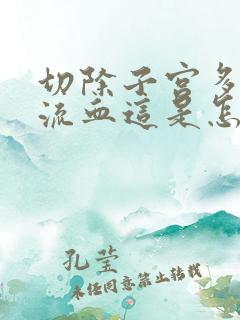 切除子宫多
流血這是怎
孔莹
未经同意禁止转载